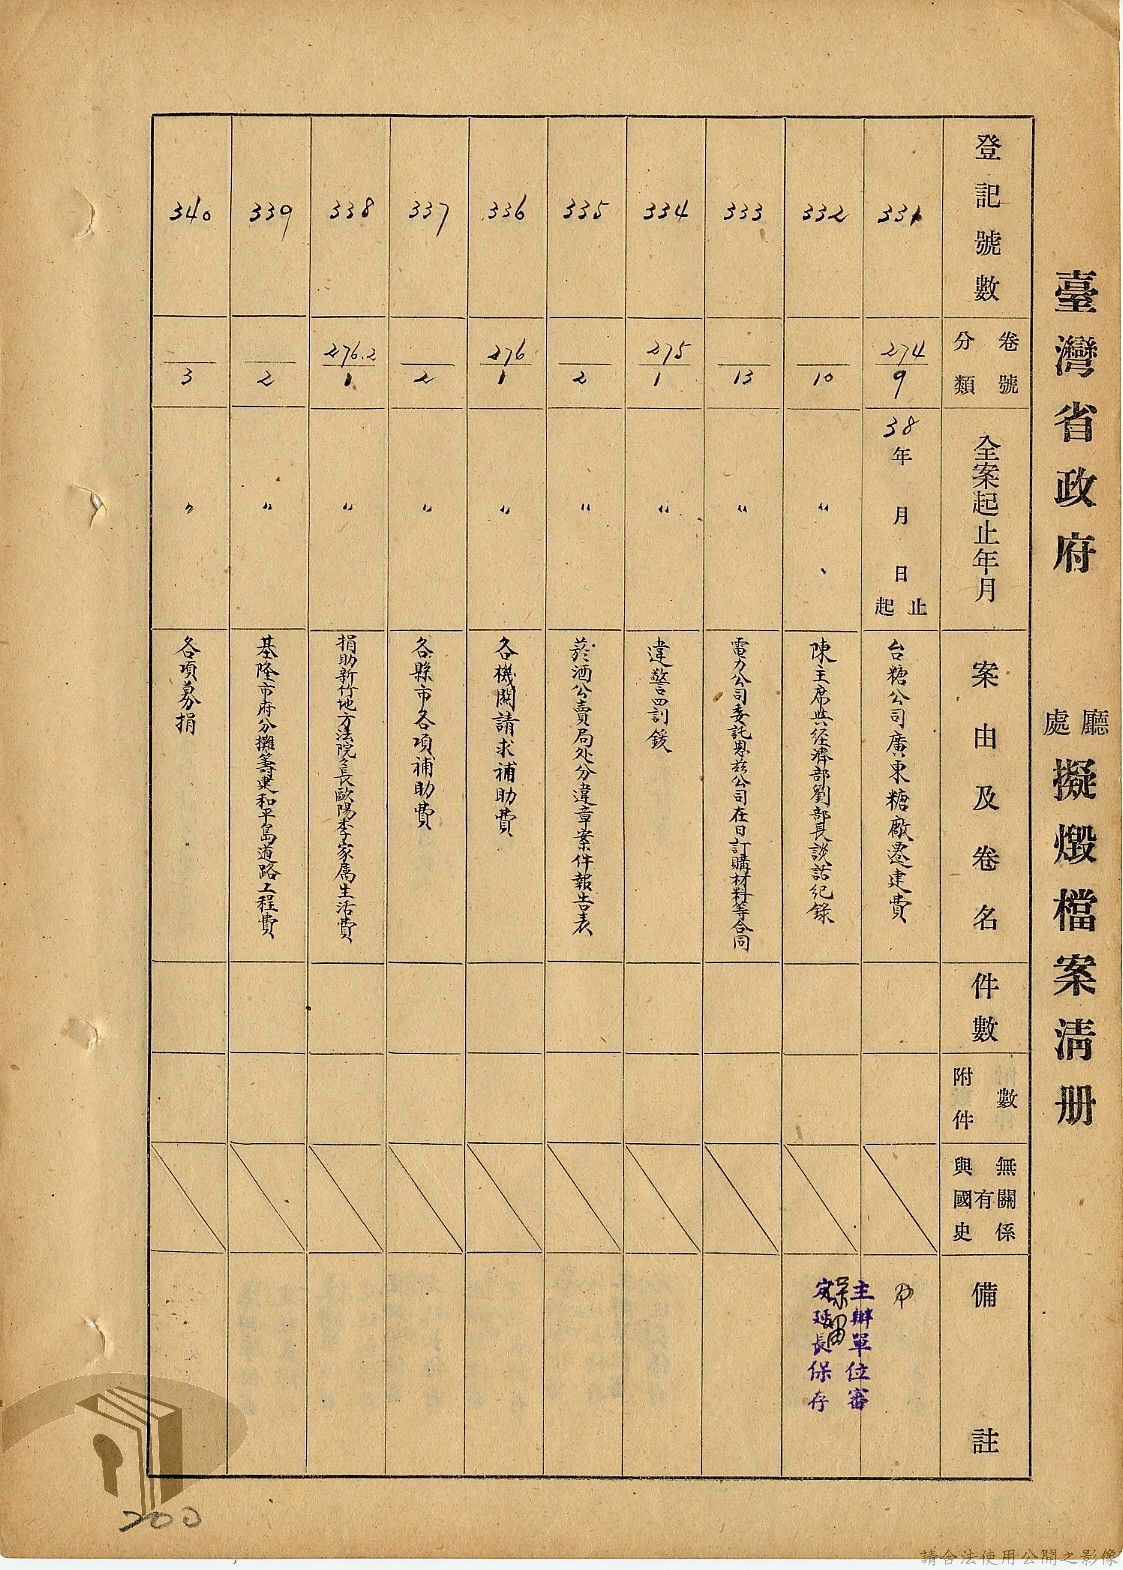 臺灣省政府
廳處
擬燬檔案清册
登記號數
卷號
分類
全案起止年月
案由及卷名
件數
附件
數
與國史
有
無關係
備註
331
274
9
38年月日
起止
台糖公司廣東糖廠遷建費
332
10
〃
陳主席與經濟部劉部長談話紀錄
主辦單位審
定延長保存
保留
333
13
〃
電力公司委託恩茲公司在日訂購材料等合同
334
275
1
〃
違警罰鍰
335
2
〃
菸酒公賣局处分違章案件報告表
336
276
1
〃
各機関請求補助費
337
2
〃
各縣市各項補助費
338
276.2
1
〃
捐助新竹地方法院長歐陽季家属生活費
339
2
〃
基隆市府分攤籌建和平島道路工程費
340
3
〃
各項募捐
200
請合法使用公開之影像